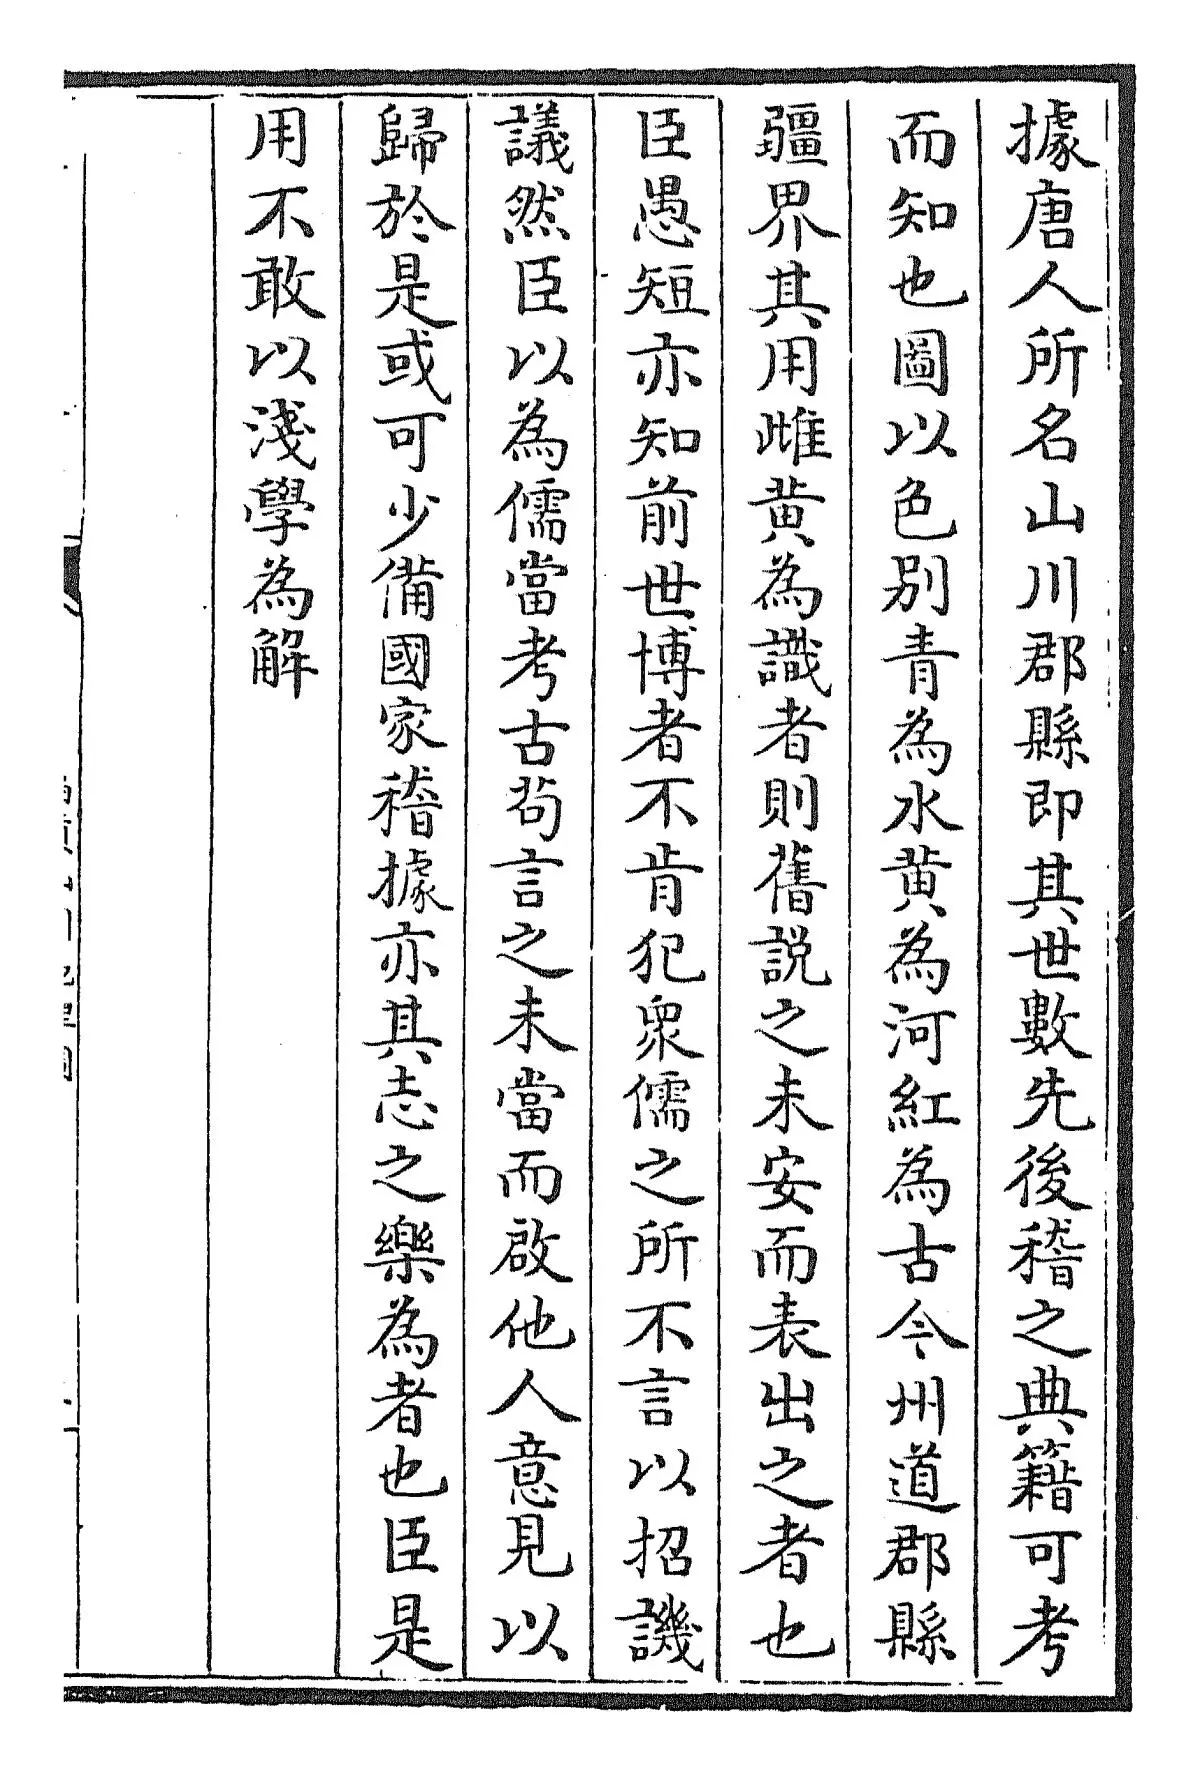 據唐人所名山川郡縣即其世數先後稽之典籍可考
而知也圖以色別青為水黃為河紅為古今州道郡縣
疆界其用雌黃為識者則舊説之未安而表出之者也
臣愚短亦知前世博者不肯犯衆儒之所不言以招譏
議然臣以為儒當考古茍言之未當而啟他人意見以
歸於是或可少備國家稽據亦其志之樂為者也臣是
用不敢以淺學為解